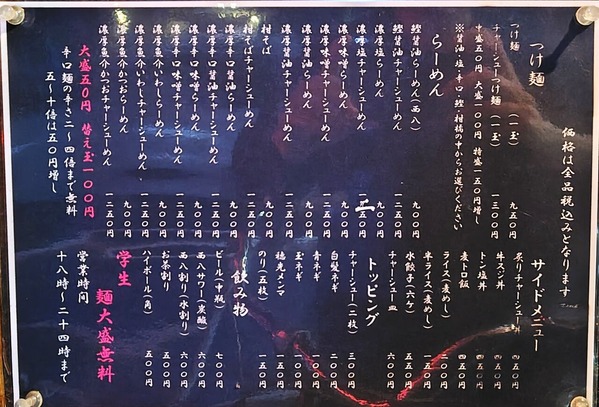 価格は全品税込みとなります
つけ麺
つけ麺 (一玉) 九五〇円
チャーシューつけ麺 (一玉) 一三〇〇円
中盛五〇円 大盛一〇〇円 特盛一五〇円増し
※醤油・塩・辛口・鰹・柑橘の中からお選びください
らーめん
鰹醤油らーめん(西八) 九〇〇円
鰹醤油チャーシューめん 一二五〇円
濃厚塩らーめん 九〇〇円
濃厚塩チャーシューめん
濃厚醤油らーめん 九〇〇円
濃厚醤油チャーシューめん 一二五〇円
濃厚味噌らーめん 九〇〇円
濃厚味噌チャーシューめん 一二五〇円
柑そば 九〇〇円
柑そばチャーシューめん 一二五〇円
濃厚辛口醤油らーめん 九〇〇円
濃厚辛口醤油チャーシューめん 一二五〇円
濃厚辛口味噌らーめん 九〇〇円
濃厚辛口味噌チャーシューめん 一二五〇円
濃厚魚介いわしらーめん 九〇〇円
濃厚魚介いわしチャーシューめん 一二五〇円
濃厚魚介かつおらーめん 九〇〇円
濃厚魚介かつおチャーシューめん 一二五〇円
大盛五〇円 替え玉一〇〇円
辛口麺の辛さ二~四倍まで無料
五~十倍は五〇円増し
サイドメニュー
炙りチャーシュー丼 四五〇円
牛スジ丼 四五〇円
トン塩丼 四五〇円
麦トロ飯 四五〇円
ライス(麦めし) 二〇〇円
半ライス(麦めし) 一五〇円
水餃子(六ケ) 五五〇円
チャーシュー皿 六〇〇円
トッピング
チャーシュー(二枚) 三〇〇円
白髪ネギ 二〇〇円
青ネギ 一〇〇円
玉ネギ 一〇〇円
穂先メンマ 一五〇円
のり(五枚) 一五〇円
飲み物
ビール(中瓶) 七〇〇円
西八サワー(炭酸) 六〇〇円
西八割り(水割り) 六〇〇円
お茶割り 五〇〇円
ハイボール(角) 五〇〇円
学生 麺大盛無料
営業時間
十八時~二十四時まで